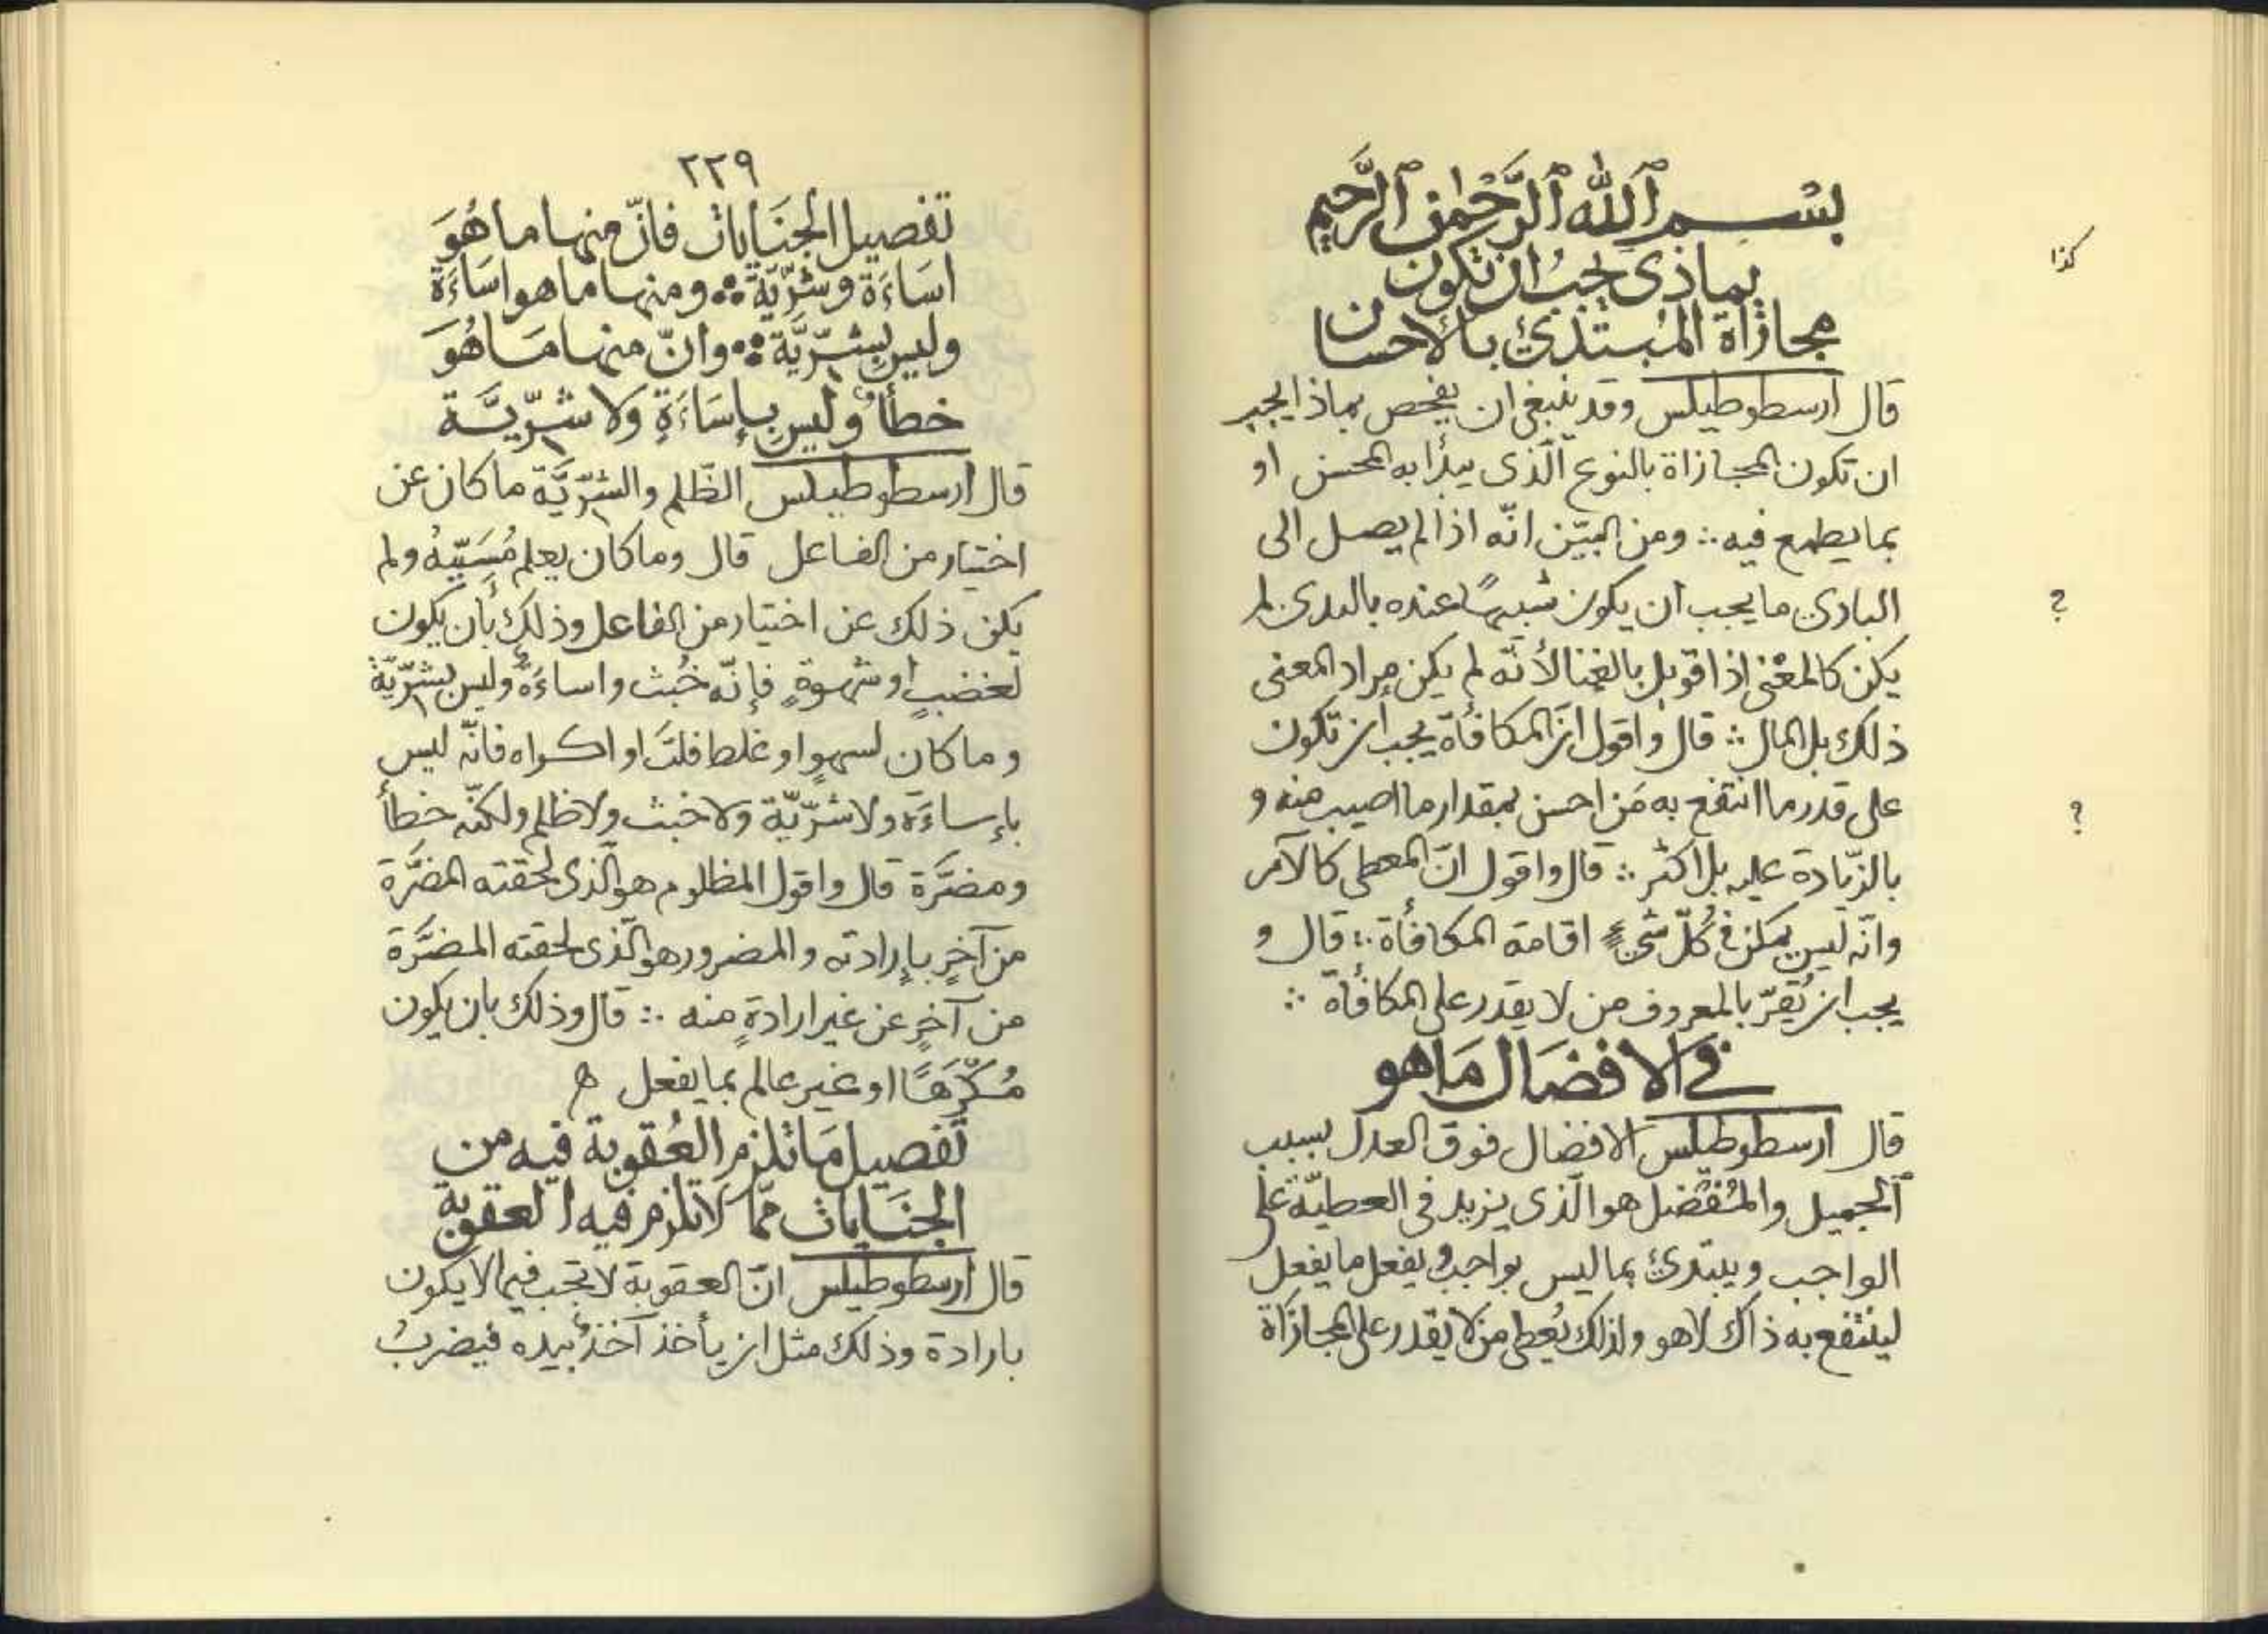 بسم ٱلله ٱلرّحمٰن ٱلرّحيم
كذا
بماذى يجب ان تكون
مجازاة المبتدئ بالاحسان
قال ارسطوطيلس وقد ينبغى ان يفحص بماذا يجب
ان تكون المجازاة بالنوع الّذى يبدأ به المحسن او
بما يطمع فيه ∴ ومن البيّن انّه اذا لم يصل الى
البادئ ما يجب ان يكون شبيهًا عنده بالبدئ لم
?
يكن كالمغنى اذا قوبل بالغنا لأنّه لم يكن مراد المعنى
ذلك بل المال ∴ قال واقول انّ المكافأة يجب ان تكون
على قدر ما انتفع به مَن احسن بمقدار ما اصيب منه و
?
بالزّيادة عليه بل اكثر ∴ قال واقول انّ المعطى كالآمر
وانّه ليس يمكن فى كلّ شىءٍ اقامة المكافأة ∴ قال و
يجب ان يُقرّ بالمعروف من لا يقدر على المكافأة ∴
فى الافضال مَا هو
قال ارسطوطيلس الافضال فوق العدل بسبب
ٱلجميل والمُتفضّل هو الّذى يزيد فى العطيّة على
الواجب ويبتدئ بما ليس بواجب ويفعل ما يفعل
لينتفع به ذاك لا هو ولذلك يُعطى من لا يقدر على المجازاة
٢٢٩
تفصيل الجنَايات فانّ منها ما هُوَ
اسَاءَة وشرّيّة ∴ ومنها ما هو اسَاءَة
وليس بشرّيَّة ∴ وانّ منها مَا هُوَ
خطأٌ وليس بإسَاءَةٍ ولا شرّيّة
قال ارسطوطيلس الظّلم والشرّيّة ما كان عن
اختيار من الفاعل قال وما كان يعلم مُسَبّبهُ ولم
يكن ذلك عن اختيار من الفاعل وذلك بأن يكون
لغضبٍ او شهوةٍ فإنّه خُبث واساءَةٌ وليس بشرّيّةٍ
وما كان لسهوٍ او غلط فلتَ او اكراه فانّه ليس
بإساءَة ولا شرّيّة ولا خبث ولا ظلم ولكنّه خطأ
ومضرَّة قال واقول المظلوم هو الّذى لحقته المضرَّة
من آخرٍ بإرادته والمضرور هو الّذى لحقته المضرَّة
من آخرٍ عن غير ارادةٍ منه ∴ قال وذلك بان يكون
مُكرَّهًا او غير عالم بما يفعل ه
تفصيل مَا تلزم العُقوبة فيه من
الجنَايات ممّا لا تلزم فيه العقوبة
قال ارسطوطيلس انّ العقوبة لا تجب فيما لا يكون
بارادة وذلك مثل ان يأخذ آخذٌ بيده فيضربُ